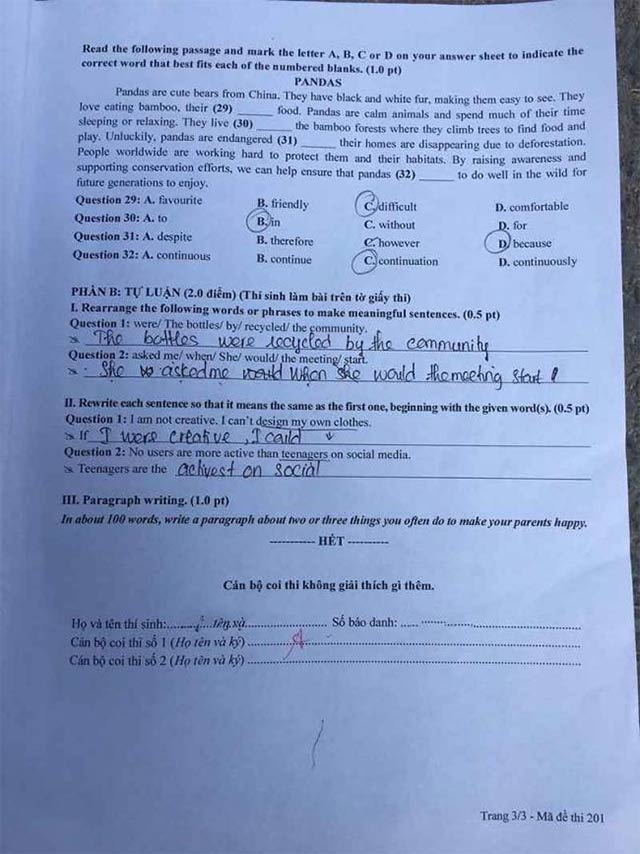 Read the following passage and mark the letter A, B, C or D on your answer sheet to indicate the
correct word that best fits each of the numbered blanks. (1.0 pt)
PANDAS
Pandas are cute bears from China. They have black and white fur, making them easy to see. They
love eating bamboo, their (29) ______ food. Pandas are calm animals and spend much of their time
sleeping or relaxing. They live (30) ______ the bamboo forests where they climb trees to find food and
play. Unluckily, pandas are endangered (31) ______ their homes are disappearing due to deforestation.
People worldwide are working hard to protect them and their habitats. By raising awareness and
supporting conservation efforts, we can help ensure that pandas (32) ______ to do well in the wild for
future generations to enjoy.
Question 29: A. favourite B. friendly C. difficult D. comfortable
Question 30: A. to B. in C. without D. for
Question 31: A. despite B. therefore C. however D. because
Question 32: A. continuous B. continue C. continuation D. continuously
PHẦN B: TỰ LUẬN (2.0 điểm) (Thí sinh làm bài trên tờ giấy thi)
I. Rearrange the following words or phrases to make meaningful sentences. (0.5 pt)
Question 1: were/ The bottles/ by/ recycled/ the community.
The bottles were recycled by the community
Question 2: asked me/ when/ She/ would/ the meeting/ start.
She asked me would when she would the meeting start
II. Rewrite each sentence so that it means the same as the first one, beginning with the given word(s). (0.5 pt)
Question 1: I am not creative. I can't design my own clothes.
If I were creative, I could
Question 2: No users are more active than teenagers on social media.
Teenagers are the activest on social
III. Paragraph writing. (1.0 pt)
In about 100 words, write a paragraph about two or three things you often do to make your parents happy.
---------- HẾT ----------
Cán bộ coi thi không giải thích gì thêm.
Họ và tên thí sinh: Số báo danh:
Cán bộ coi thi số 1 (Họ tên và ký)
Cán bộ coi thi số 2 (Họ tên và ký)
Trang 3/3 - Mã đề thi 201